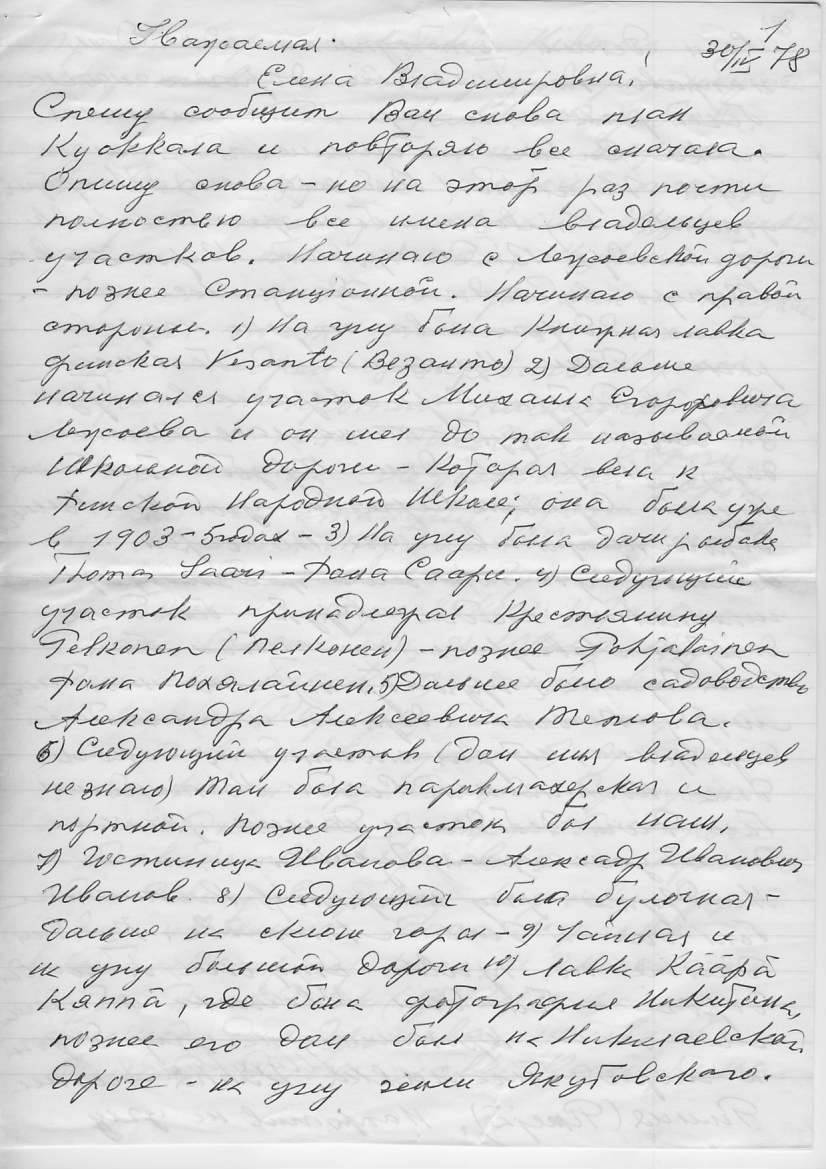 1
Уважаемая
30/IV 78
Елена Владимировна!
Спешу сообщит Вам снова план
Куоккала и повторяю все сначала.
Опишу снова – но на этот раз почти
полностью все имена владельцев
участков. Начинаю с дороги
– познее Станционной. Начинаю с правой
стороны. 1) На углу была Книжная лавка
финская Vesanto (Везанто) 2) Дальше
начинался участок Михаила Егоровича
и он шел до так называемой
Школьной дороги – которая вела к
Финской Народной Школе; она была уже
в 1903–5 годах – 3) На углу была дача рыбака
Thomas Saari – Фома Саари. 4) Следующий
участок принадлежал Крестьянину
Pelkonen (Пелконен) – познее Pohjalainen
Фома Похялайнен. 5) Дальнее было садоводство
Александра Алексеевича
6) Следующий участок (дом имя владельцев
не знаю) Там была парикмахерская и
портной. Познее участок был наш.
7) Гостиница Иванова – Александр Иванович
Иванов. 8) Следующий была булочная –
Дальше на склоне горы – 9) Чайная и
на углу большой дороги 10) Лавка Kääpä
Кяппä, где была фотография Никитина,
познее его дом был на Николаевской
дороге – на углу земли Якубовского.